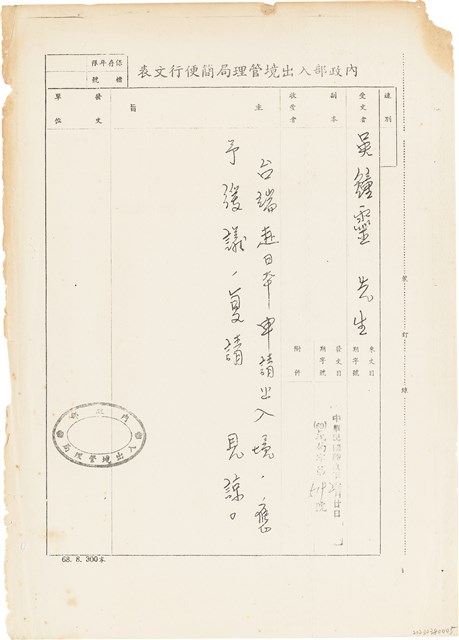 內政部入出境管理局簡便行文表
保存年限
檔號
速別
受文者
吳鐘靈 先生
來文日期字號
副本收受者
發文日期字號
附件
中華民國 月廿日
519號
主旨
台端赴日本申請出入境，應
予緩議，复請 見諒。
發文單位
內政部
入出境管理局
裝訂線
68.8.300本